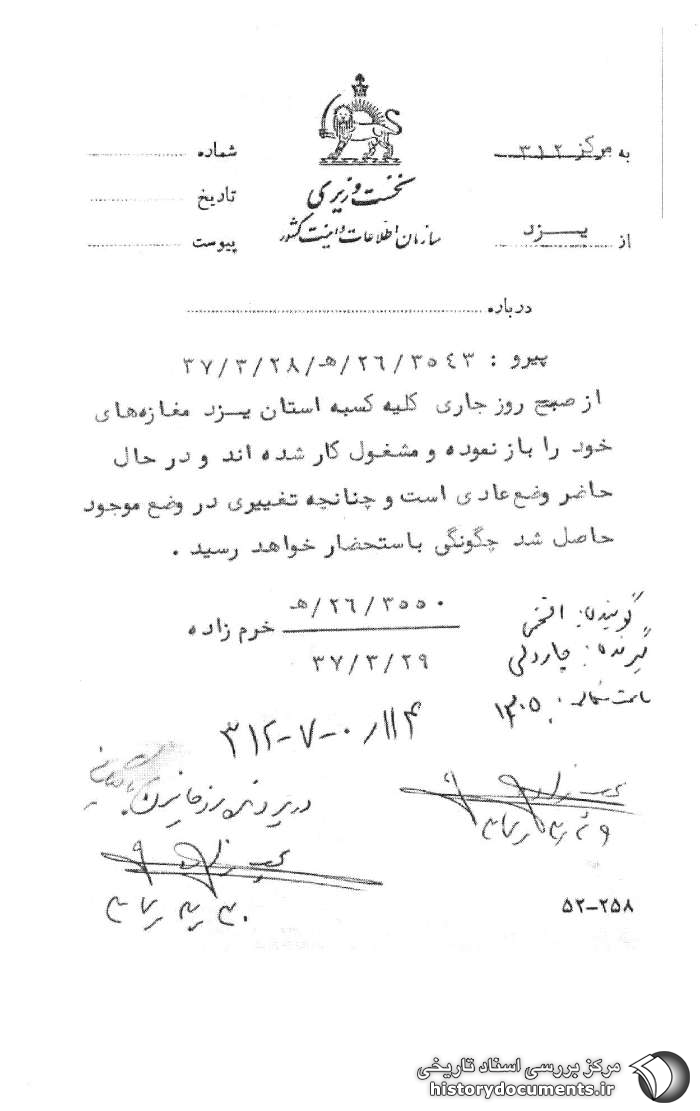 به مرکز ۳۱۲
شماره
نخست وزیری
تاریخ
سازمان اطلاعات و امنیت کشور
از یــزد
پیوست
درباره
پیرو : ۳۵۴۳/۲۶/هـ/۳۷/۳/۲۸
از صبح روز جاری کلیه کسبه استان یــزد مغازه‌های
خود را باز نموده و مشغول کار شده اند و در حال
حاضر وضع عادی است و چنانچه تغییری در وضع موجود
حاصل شد چگونگی باستحضار خواهد رسید .
۳۵۵۰/۲۶/هـ
خرم زاده
۳۷/۳/۲۹
گوینده: افخمی
گیرنده: چاردلی
ساعت مخابره:
۳۱۲-۷-۰/۱۱۴
در پرونده
۵۲-۲۵۸
مرکز بررسی اسناد تاریخی
historydocuments.ir